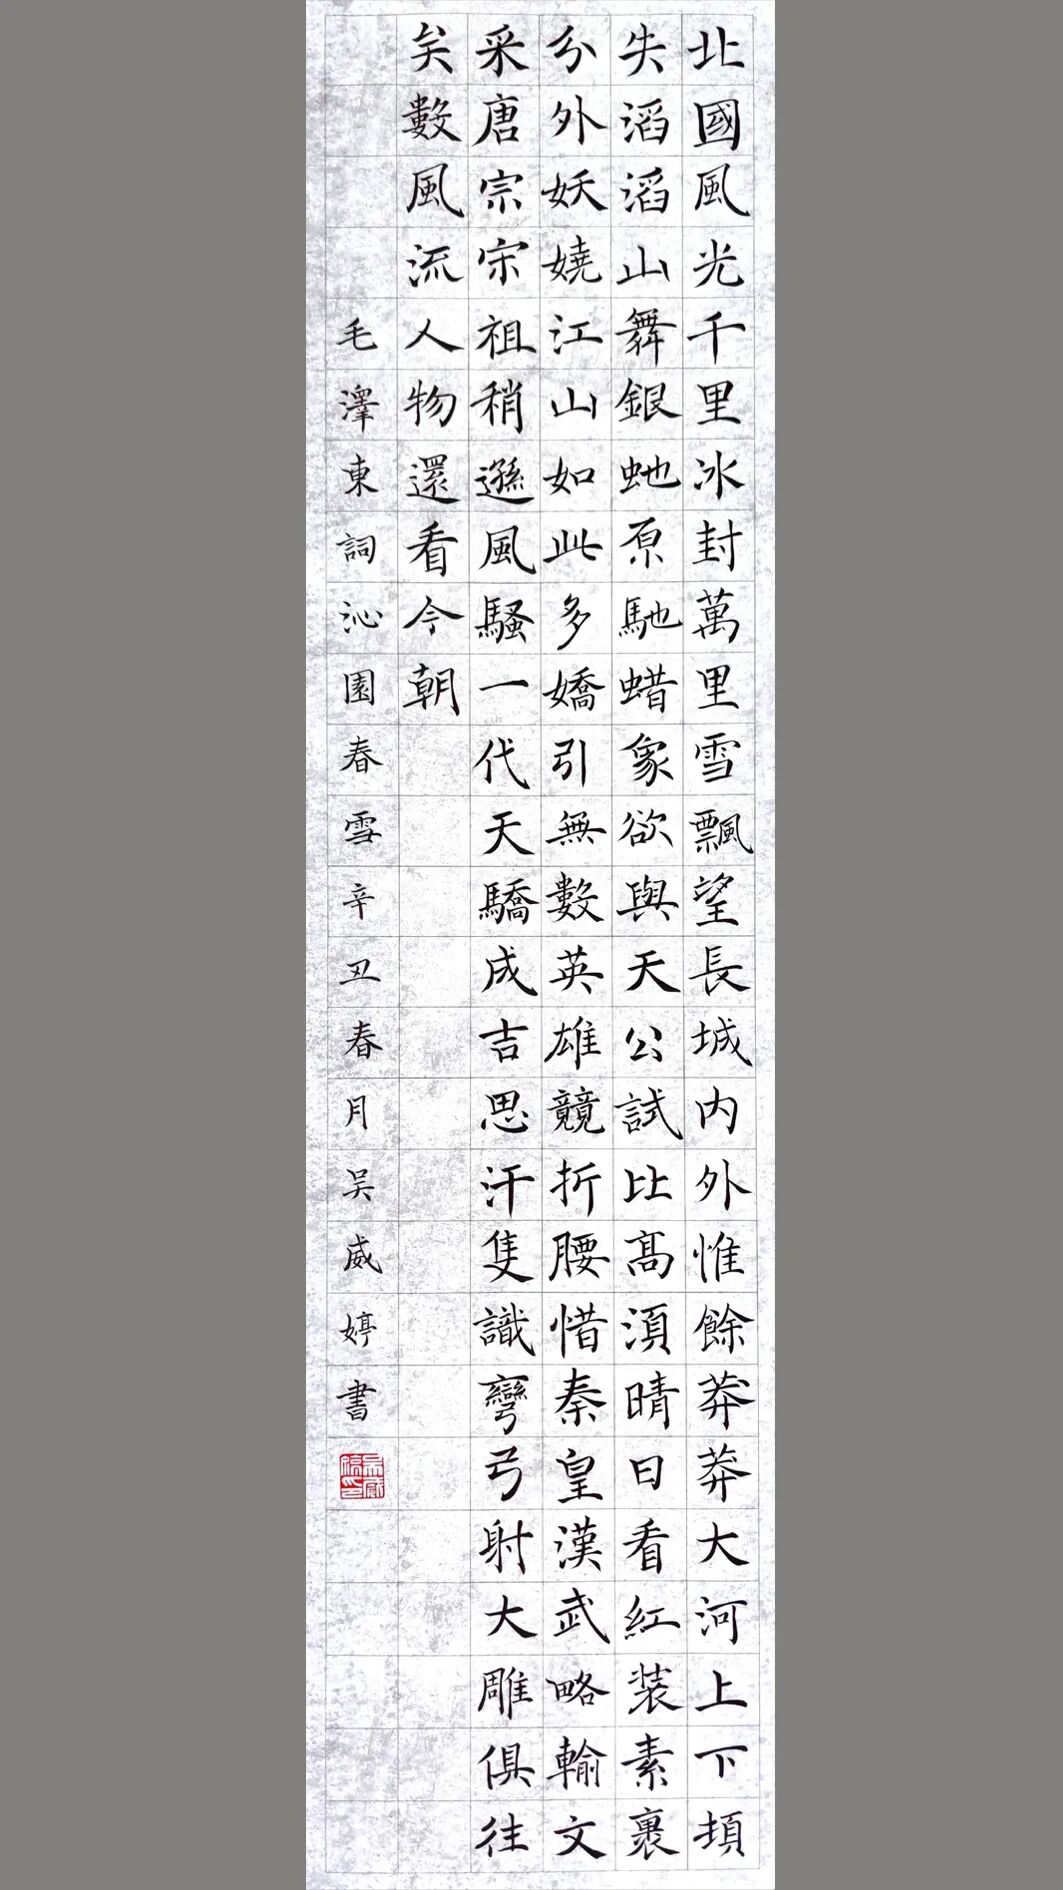 北國風光千里冰封萬里雪飄望長城内外惟餘莽莽大河上下頓
失滔滔山舞銀虵原馳蜡象欲與天公試比髙湏晴日看紅装素裹
分外妖嬈江山如此多嬌引無數英雄競折腰惜秦皇漢武略輸文
采唐宗宋祖稍遜風騷一代天驕成吉思汗隻識彎弓射大雕俱往
矣數風流人物還看今朝
毛澤東詞沁園春雪辛丑春月吴威婷書
吴威婷印